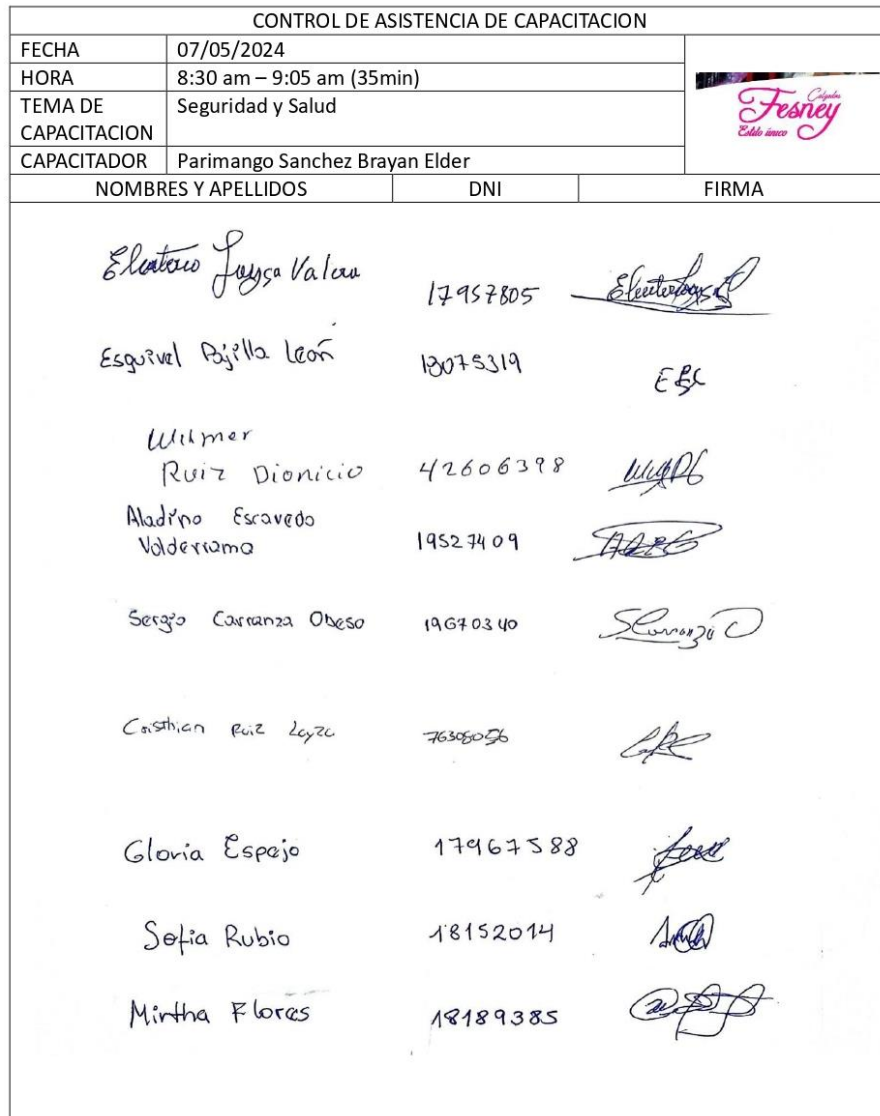 CONTROL DE ASISTENCIA DE CAPACITACION
FECHA 07/05/2024
HORA 8:30 am – 9:05 am (35min)
TEMA DE CAPACITACION Seguridad y Salud
CAPACITADOR Parimango Sanchez Brayan Elder
Calzados
Fesney
Estilo único
NOMBRES Y APELLIDOS DNI FIRMA
Eleuterio Loyza Valera 17957805
Esquivel León 18075319 EPL
Wilmer
Ruiz Dionicio 42606398
Aladino Escavedo
Valderrama 19527409
Sergio Carranza Obeso 19670340 SCarranza O
Cristhian Ruiz Layza
Gloria Espejo 17967588
Sofia Rubio 18152014
Mirtha Flores 18189385